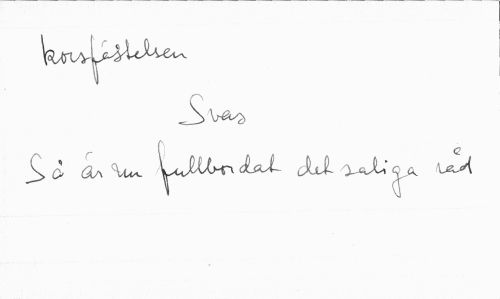 korsfästelsen
Svas
Så är nu fullbordat det saliga råd